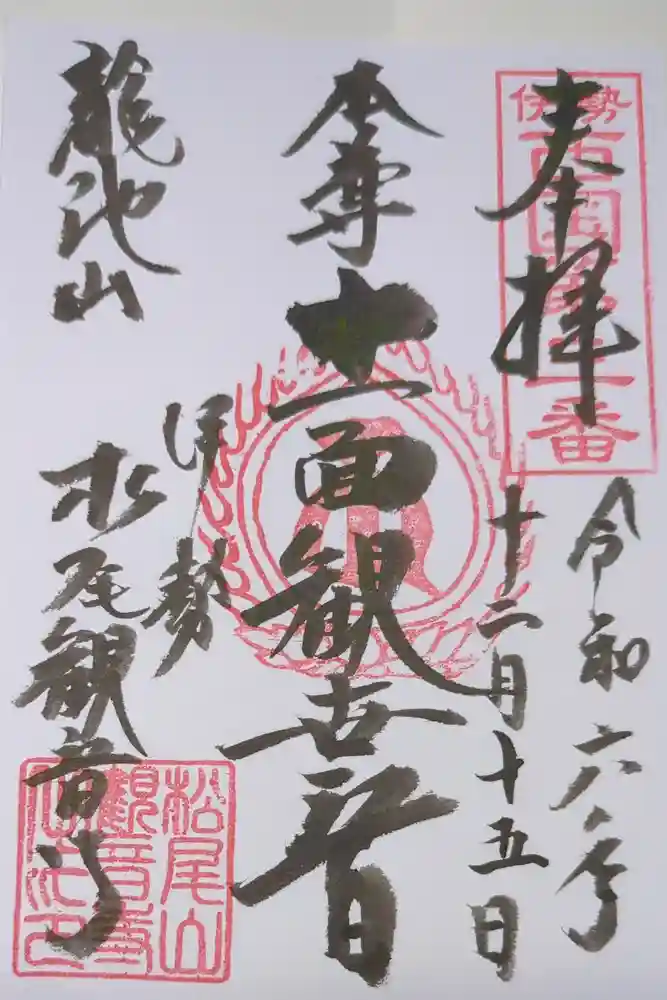 伊勢
西国第三番
奉拝
令和六年
十二月十五日
本尊 十一面観世音
龍池山
伊勢
松尾観音寺
松尾山
観音寺